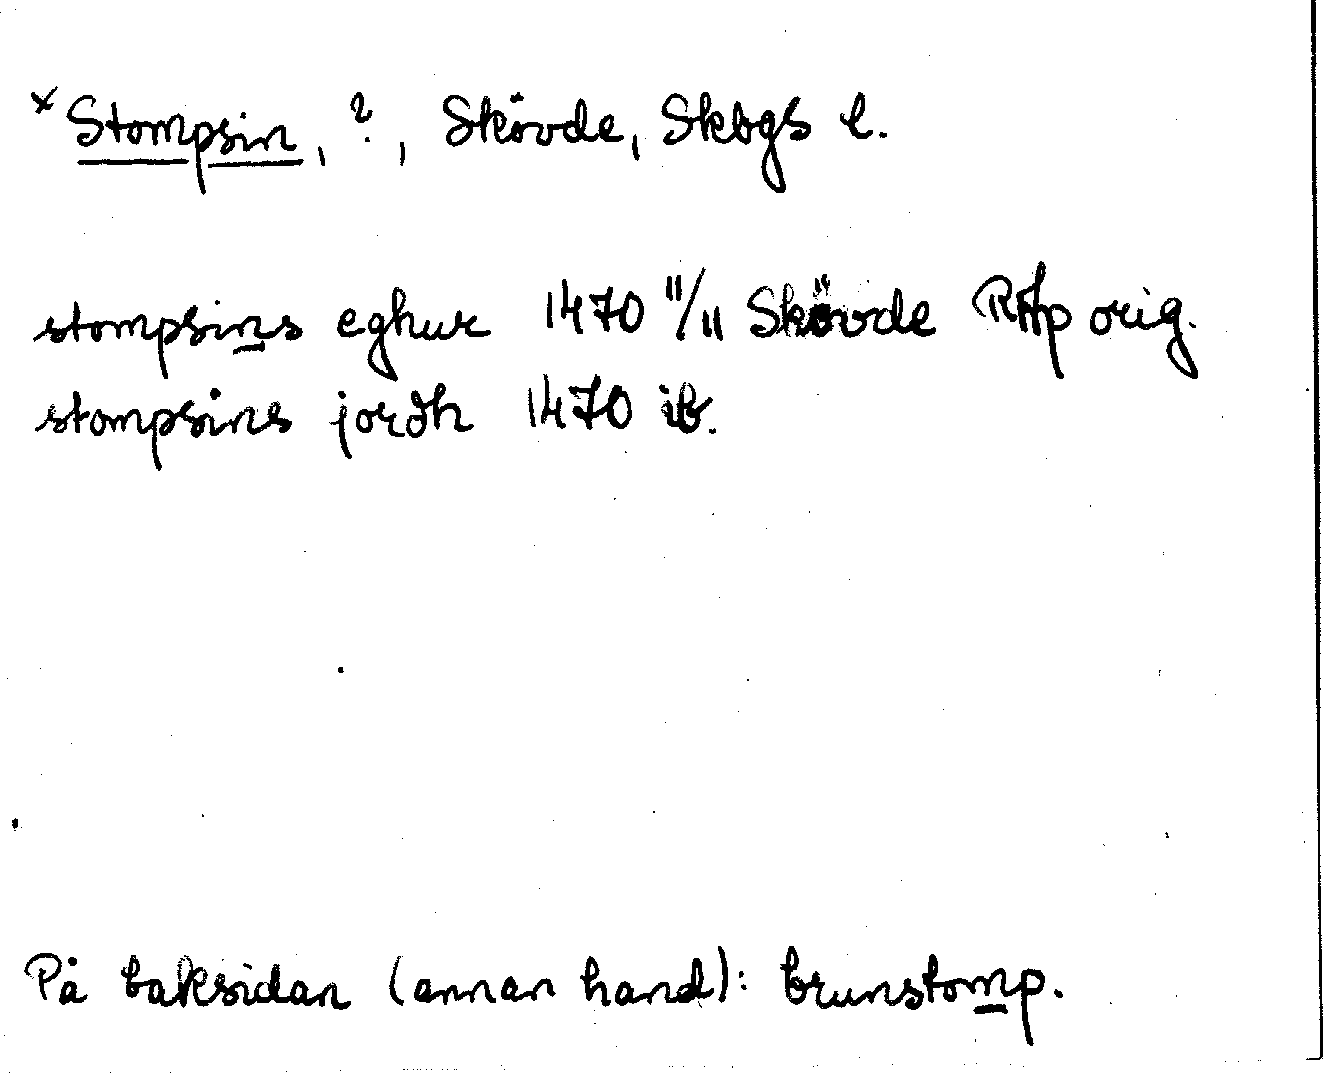 × Stompsin, ?, Skövde, Skbgs l.
stompsins eghur 1470 11/11 Skövde RAp orig.
stompsins jordh 1470 ib.
På baksidan (annan hand): brunstomp.